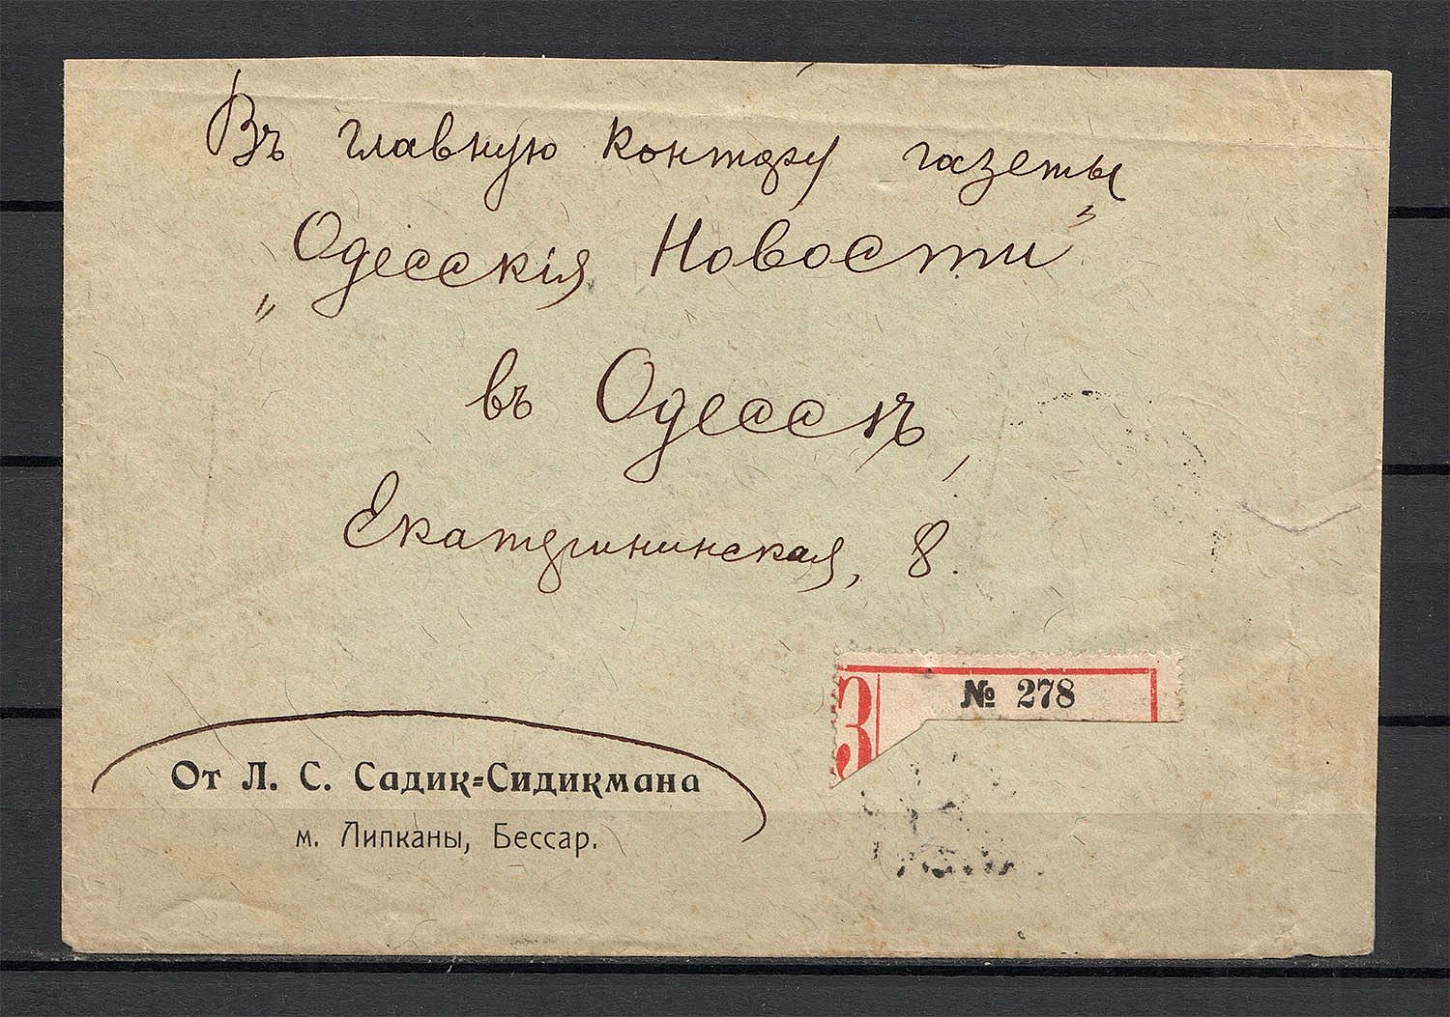 Въ главную контору газеты
„Одесскія Новости”
въ Одессѣ,
Екатерининская, 8.
З № 278
От Л. С. Садик=Сидикмана
м. Липканы, Бессар.